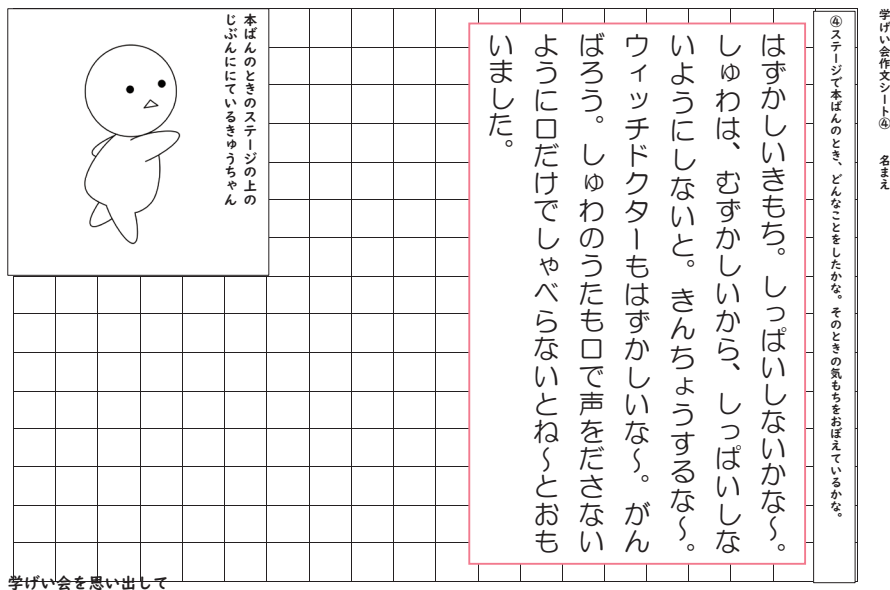 学げい会作文シート④　名まえ
④ステージで本ばんのとき、どんなことをしたかな。そのときの気もちをおぼえているかな。
はずかしいきもち。しっぱいしないかな～。
しゅわは、むずかしいから、しっぱいしな
いようにしないと。きんちょうするな～。
ウィッチドクターもはずかしいな～。がん
ばろう。しゅわのうたも口で声をださない
ように口だけでしゃべらないとね～とおも
いました。
本ばんのときのステージの上の
じぶんににているきゅうちゃん
学げい会を思い出して